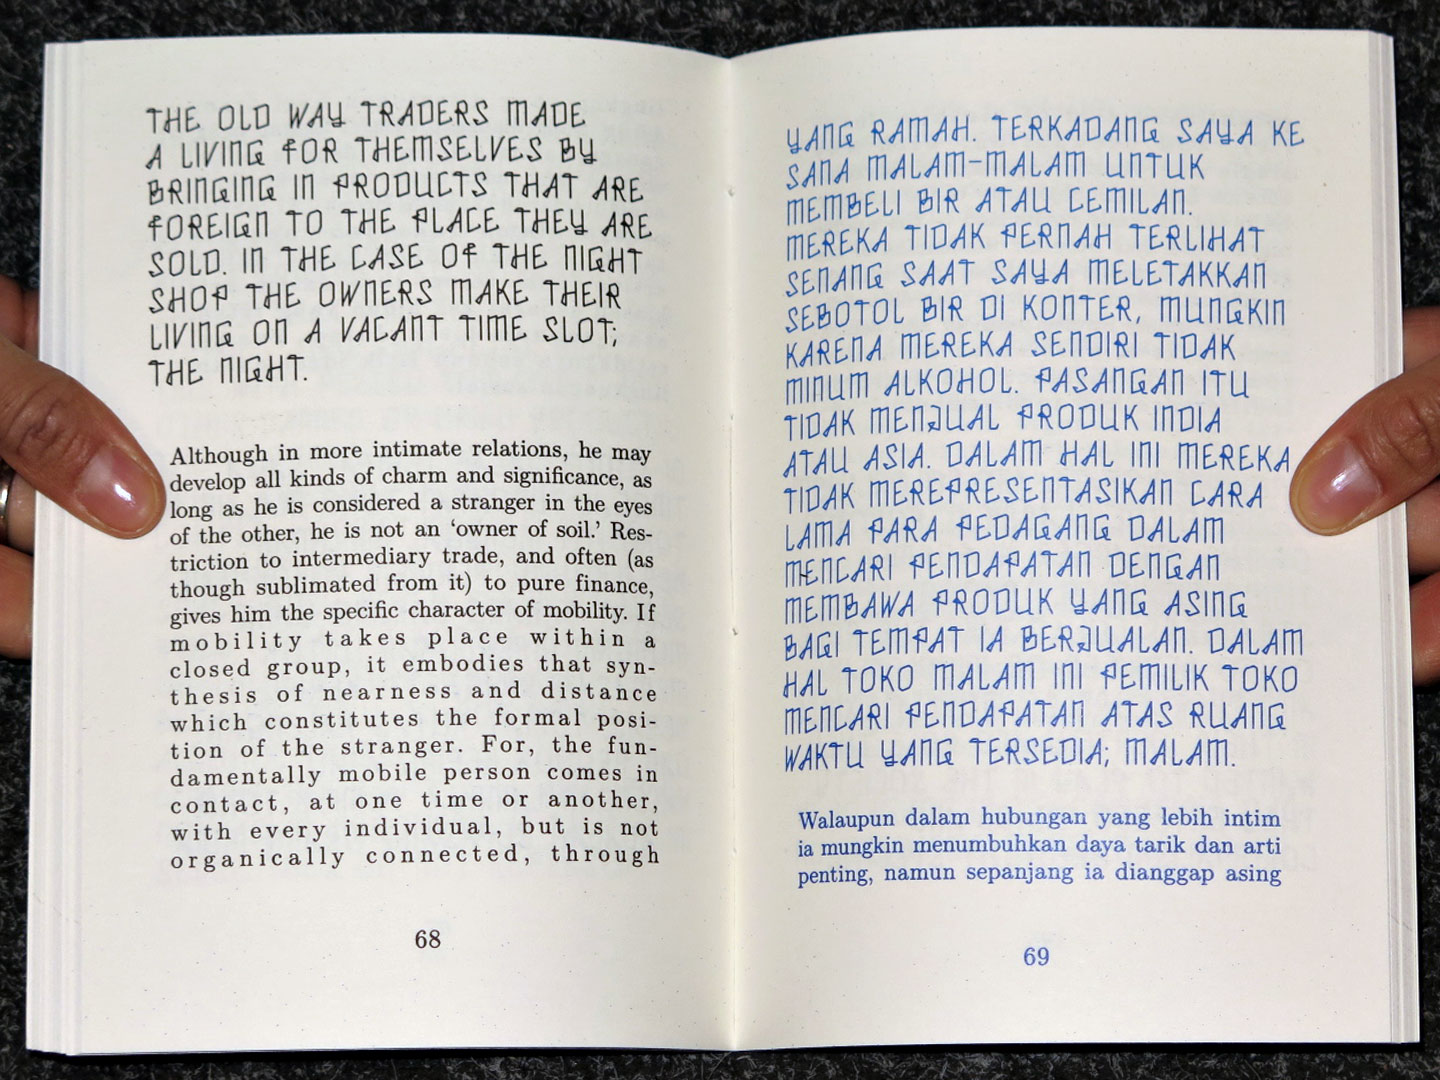 THE OLD WAY TRADERS MADE
A LIVING FOR THEMSELVES BY
BRINGING IN PRODUCTS THAT ARE
FOREIGN TO THE PLACE THEY ARE
SOLD. IN THE CASE OF THE NIGHT
SHOP THE OWNERS MAKE THEIR
LIVING ON A VACANT TIME SLOT;
THE NIGHT.
Although in more intimate relations, he may
develop all kinds of charm and significance, as
long as he is considered a stranger in the eyes
of the other, he is not an ‘owner of soil.’ Res-
triction to intermediary trade, and often (as
though sublimated from it) to pure finance,
gives him the specific character of mobility. If
mobility takes place within a
closed group, it embodies that syn-
thesis of nearness and distance
which constitutes the formal posi-
tion of the stranger. For, the fun-
damentally mobile person comes in
contact, at one time or another,
with every individual, but is not
organically connected, through
68
YANG RAMAH. TERKADANG SAYA KE
SANA MALAM-MALAM UNTUK
MEMBELI BIR ATAU CEMILAN.
MEREKA TIDAK PERNAH TERLIHAT
SENANG SAAT SAYA MELETAKKAN
SEBOTOL BIR DI KONTER, MUNGKIN
KARENA MEREKA SENDIRI TIDAK
MINUM ALKOHOL. PASANGAN ITU
TIDAK MENJUAL PRODUK INDIA
ATAU ASIA. DALAM HAL INI MEREKA
TIDAK MEREPRESENTASIKAN CARA
LAMA PARA PEDAGANG DALAM
MENCARI PENDAPATAN DENGAN
MEMBAWA PRODUK YANG ASING
BAGI TEMPAT IA BERJUALAN. DALAM
HAL TOKO MALAM INI PEMILIK TOKO
MENCARI PENDAPATAN ATAS RUANG
WAKTU YANG TERSEDIA; MALAM.
Walaupun dalam hubungan yang lebih intim
ia mungkin menumbuhkan daya tarik dan arti
penting, namun sepanjang ia dianggap asing
69